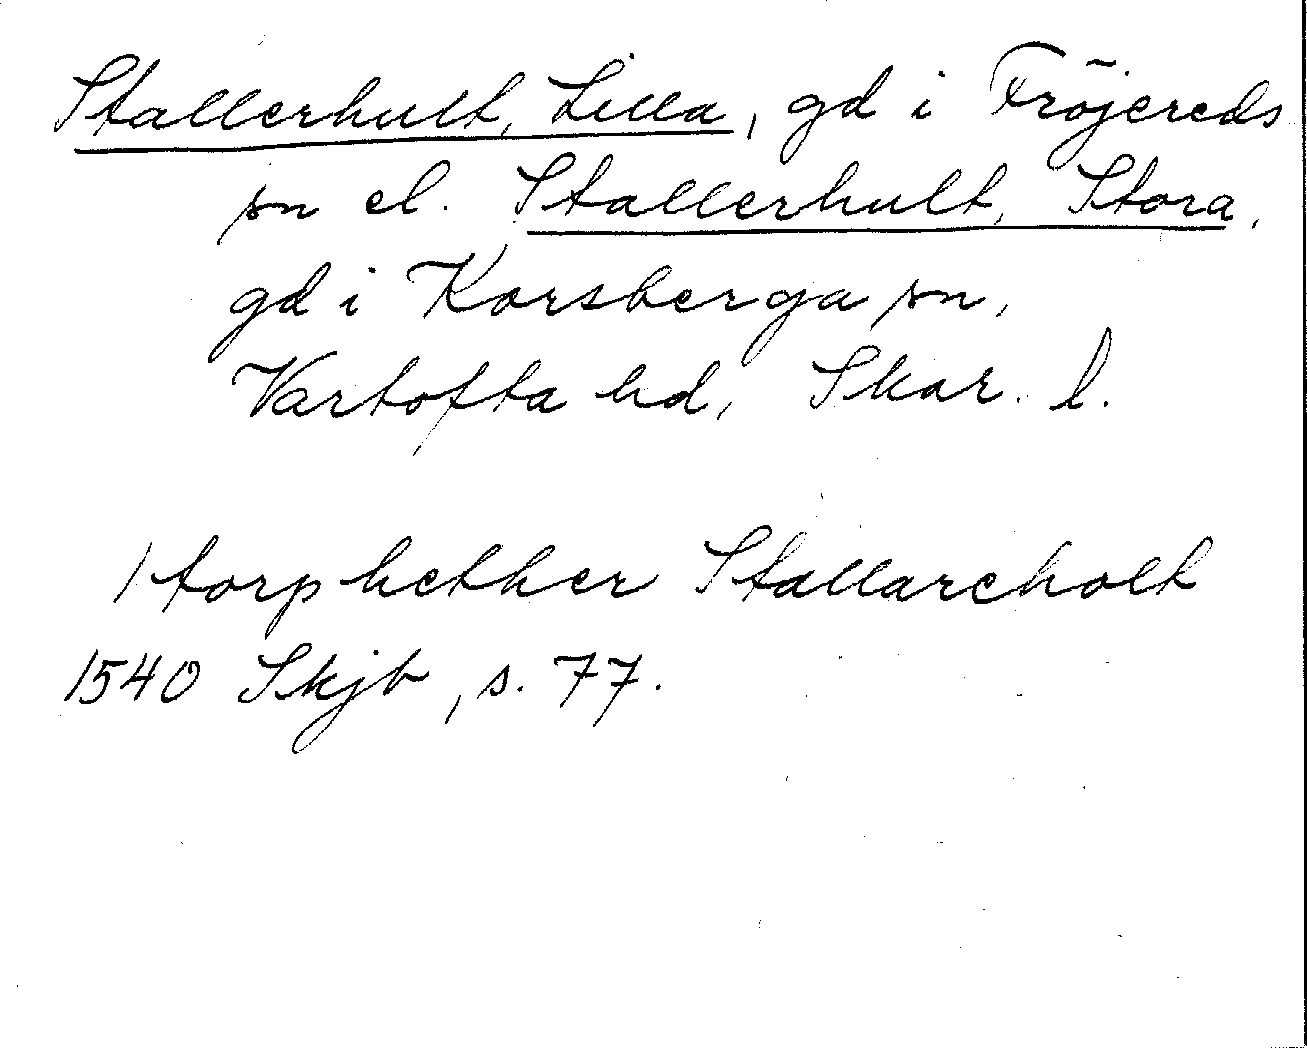 Stallerhult, Lilla, gd i Fröjereds
sn el. Stallerhult, Stora,
gd i Korsberga sn,
Vartofta hd, Skar. l.
1 torp hether Stallareholt
1540 Skjb, s. 77.